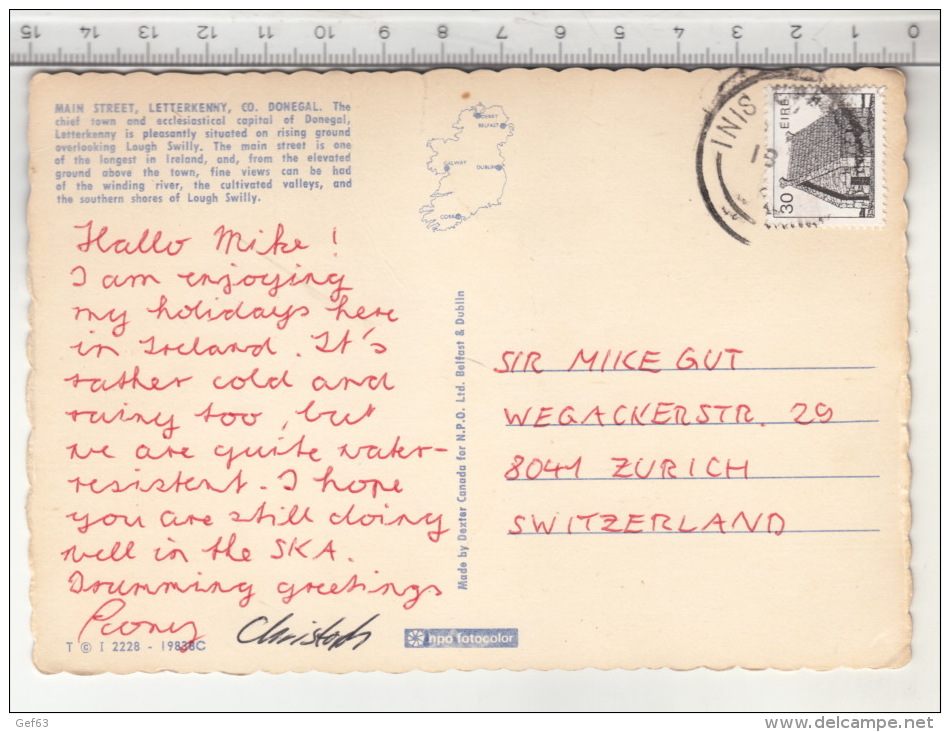 15 14 13 12 11 10 9 8 7 6 5 4 3 2 1 0
MAIN STREET, LETTERKENNY, CO. DONEGAL. The
chief town and ecclesiastical capital of Donegal,
Letterkenny is pleasantly situated on rising ground
overlooking Lough Swilly. The main street is one
of the longest in Ireland, and, from the elevated
ground above the town, fine views can be had
of the winding river, the cultivated valleys, and
the southern shores of Lough Swilly.
DERRY
BELFAST
GALWAY
DUBLIN
CORK
INIS
EIRE
30
Hallo Mike!
I am enjoying
my holidays here
in Ireland. It's
rather cold and
rainy too, but
we are quite water-
resistent. I hope
you are still doing
well in the SKA.
Drumming greetings
Christoph
T © I 2228 - 19838C
Made by Dexter Canada for N.P.O. Ltd. Belfast & Dublin
npo fotocolor
SIR MIKE GUT
WEGACKERSTR. 29
8041 ZURICH
SWITZERLAND
Gef63
www.delcampe.net